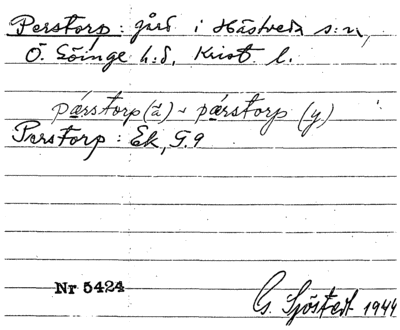 Perstorp: gård i Hästveda s:n,
Ö. Göinge h:d, Krist. l.
pærstorp (ä) - pærstorp (y)
Perstorp: Ek, G.9
Nr 5424
G. Sjöstedt 1944